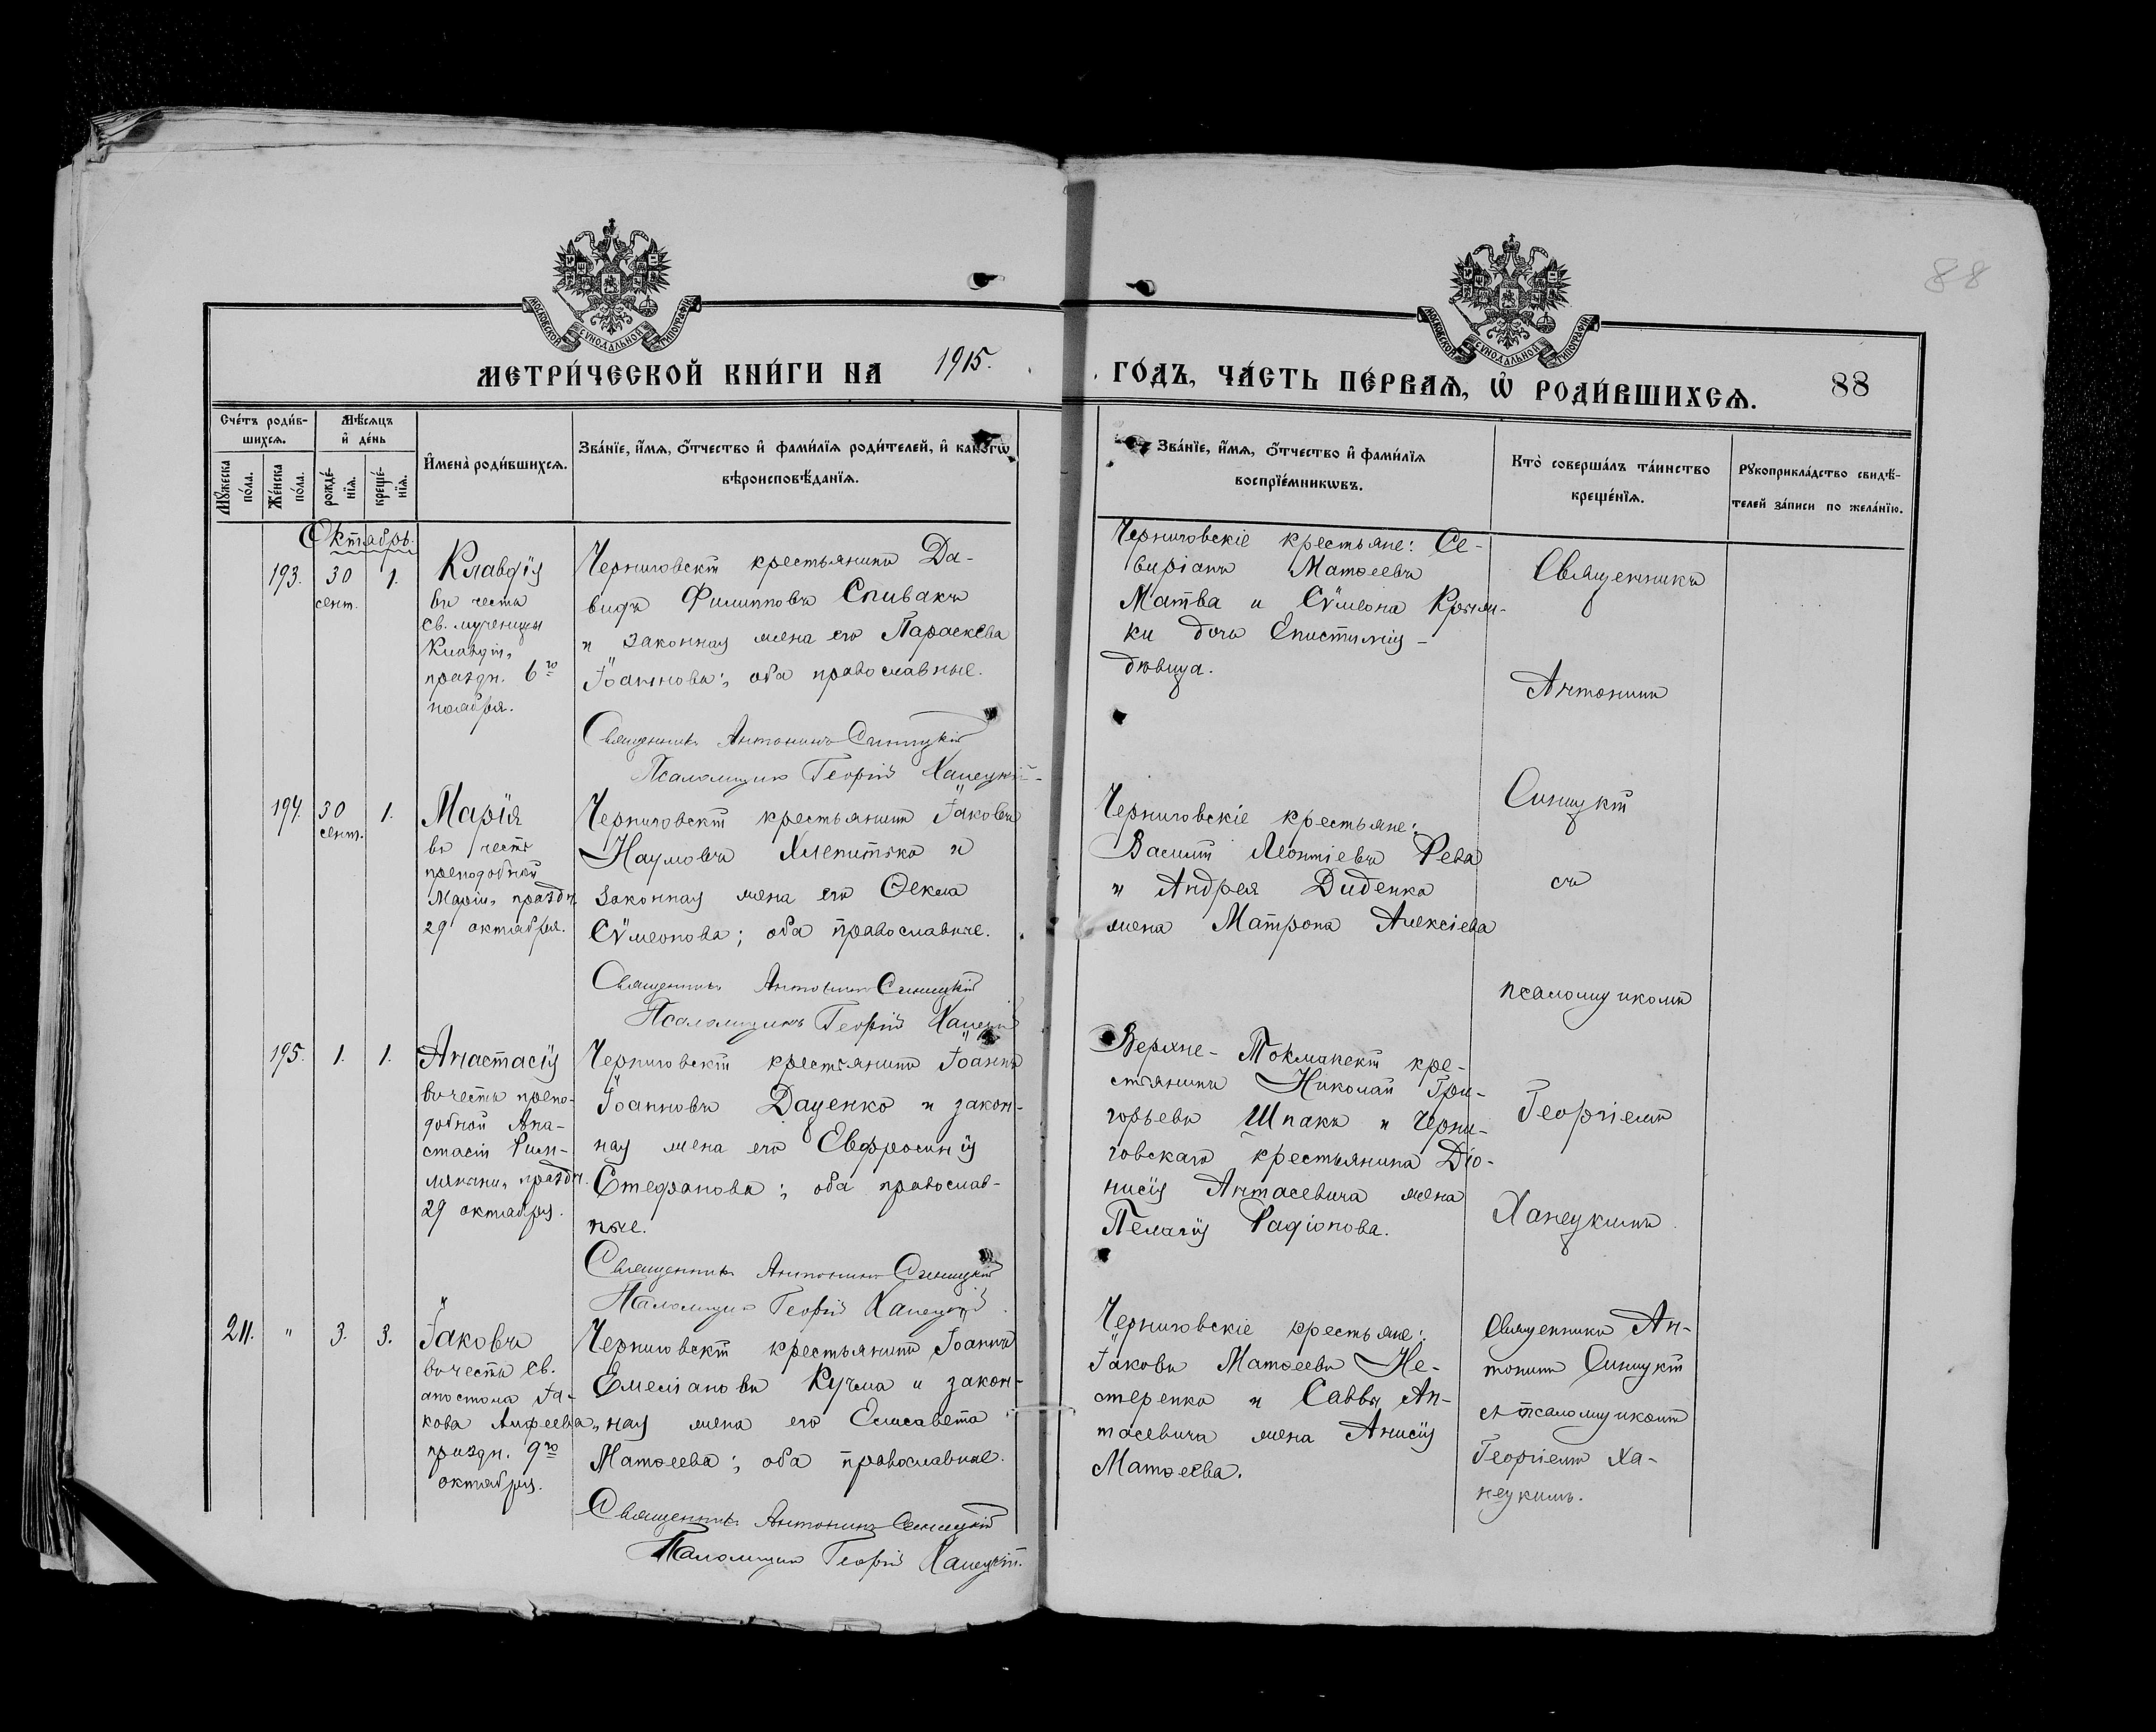 88
МОСКОВСКОЙ СѴНОДАЛЬНОЙ ТИПОГРАФІИ
МОСКОВСКОЙ СѴНОДАЛЬНОЙ ТИПОГРАФІИ
МЕТРИ́ЧЕСКОЙ КНИ́ГИ НА 1915.
ГО́ДЪ, ЧА́СТЬ ПЕ́РВАѦ, Ѡ҆ РОДИ́ВШИХСѦ. 88
Сче́тъ роди́в-
шихсѧ.
Мꙋ́жеска по́ла.
Же́нска по́ла.
Мѣ́сѧцъ
и҆ де́нь
рожде́-
нїѧ.
креще́-
нїѧ.
И҆мена̀ роди́вшихсѧ.
Зва́нїе, и҆́мѧ, ѻ҆́тчество и҆ фами́лїѧ роди́телей, и҆ како́гѡ
вѣроисповѣ́данїѧ.
Зва́нїе, и҆́мѧ, ѻ҆́тчество и҆ фами́лїѧ
воспрїе́мникѡвъ.
Кто̀ соверша́лъ та́инство
креще́нїѧ.
Рꙋкоприкла́дство свидѣ́-
телей за́писи по жела́нїю.
Октябрь.
193. 30 1.
сент.
Клавдія
въ честь
св. мученицы
Клавдіи,
праздн. 6го
ноября.
Черниговскій крестьянинъ Да-
видъ Филипповъ Спивакъ
и законная жена его Параскева
Іоаннова; оба православные.
Священникъ Антонинъ Синицкій
Псаломщикъ Георгій Ханецкій
Черниговскіе крестьяне: Се-
виріанъ Матѳеевъ
Матва и Сѵмеона
ки дочь Епистимія
дѣвица.
Священникъ
Антонинъ
Синицкій
съ
псаломщикомъ
Георгіемъ
Ханецкимъ
194. 30 1.
сент.
Марія
въ честь
преподобной
Маріи, праздн.
29 октября.
Черниговскій крестьянинъ Іаковъ
Наумовъ и
законная жена его Ѳекла
Сѵмеонова; оба православные.
Священникъ Антонинъ Синицкій
Псаломщикъ Георгій Ханецкій
Черниговскіе крестьяне:
Василій Леонтіевъ Рева
и Андрея Диденка
жена Матрона Алексіева
195. 1. 1.
Анастасія
въ честь препо-
добной Ана-
стасіи Рим-
лянани, праздн.
29 октября.
Черниговскій крестьянинъ Іоаннъ
Іоанновъ Даценко и закон-
ная жена его Евфросинія
Стефанова; оба православ-
ные.
Священникъ Антонинъ Синицкій
Псаломщикъ Георгій Ханецкій
Верхне-Токмакскій кре-
стьянинъ Николай Гри-
горьевъ Шпакъ и Черни-
говскаго крестьянина Діо-
нисія Антасевича жена
Пелагія Радіонова.
211. " 3. 3.
Іаковъ
въ честь св.
апостола Іа-
кова Алфеева,
праздн. 9го
октября.
Черниговскій крестьянинъ Іоаннъ
Емеліановъ Кучма и закон-
ная жена его Елисавета
Матѳеева; оба православные.
Священникъ Антонинъ Синицкій
Псаломщикъ Георгій Ханецкій.
Черниговскіе крестьяне:
Іаковъ Матѳеевъ Не-
стеренко и Саввы Ан-
тасевича жена Анисія
Матѳеева.
Священникъ Ан-
тонинъ Синицкій
съ псаломщикомъ
Георгіемъ Ха-
нецкимъ.